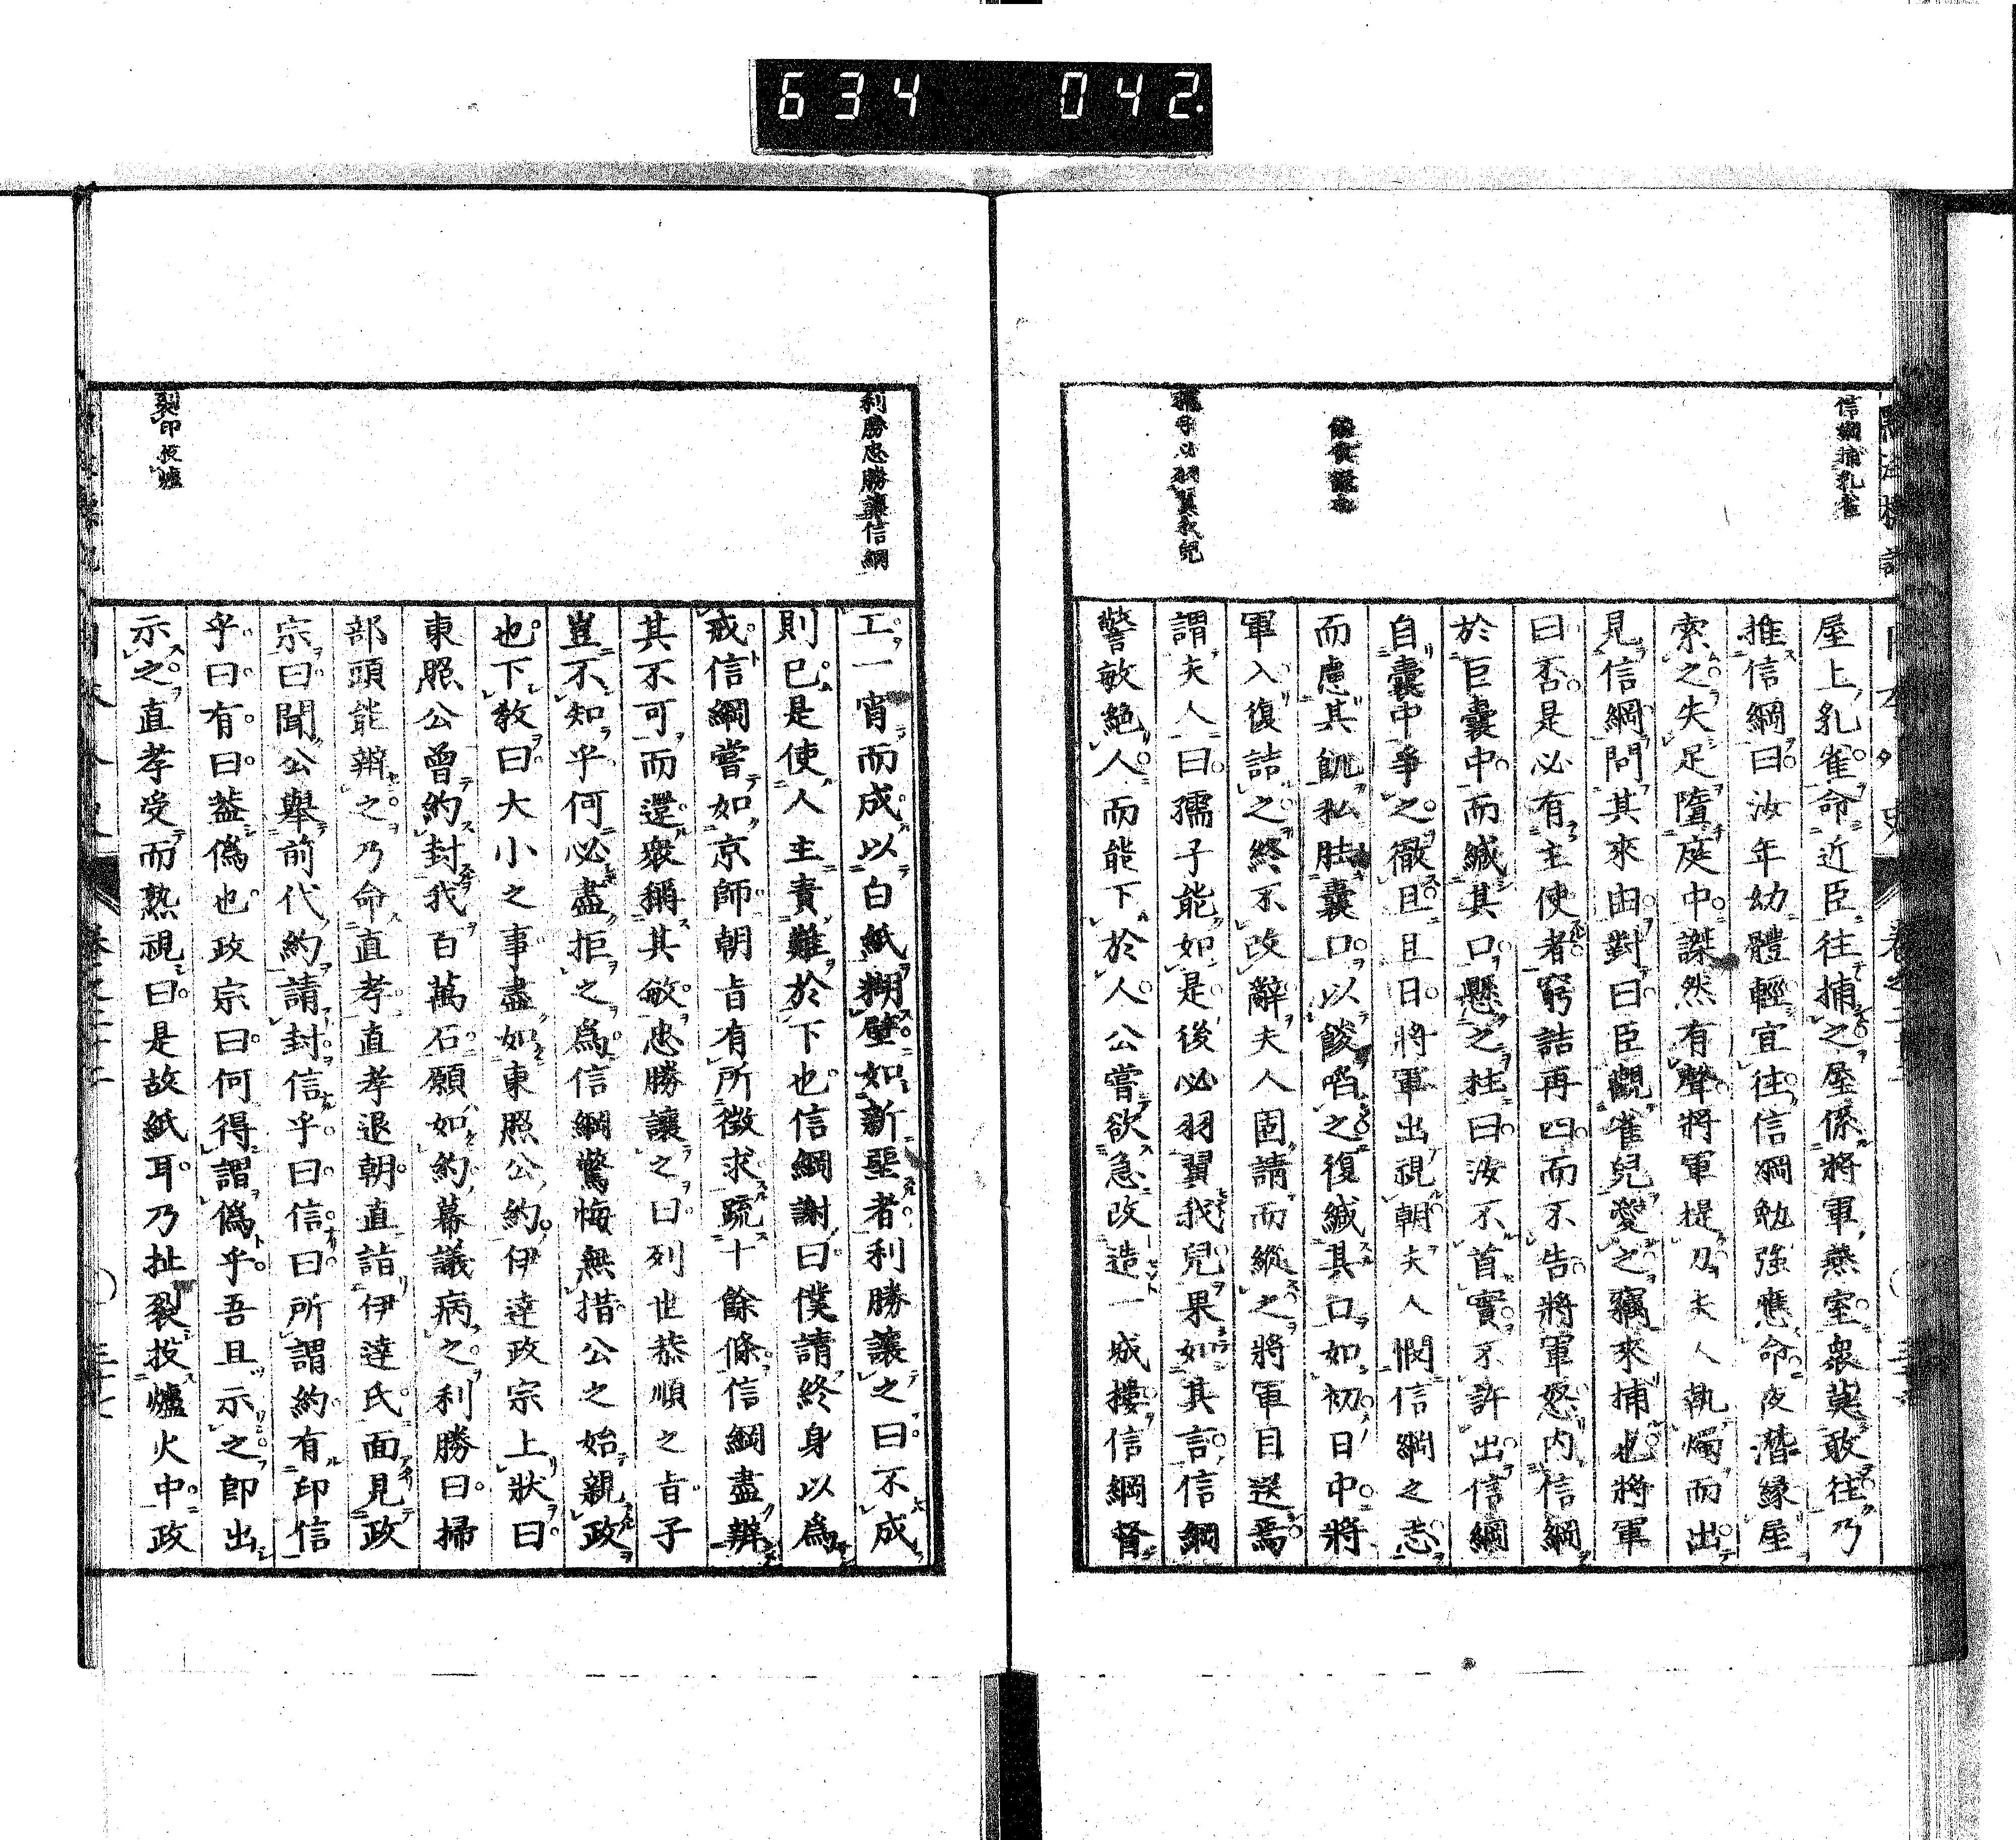 634 042
信綱捕乳雀
屋上乳雀命近臣往捕之屋係將軍燕室衆莫敢往乃
推信綱曰汝年幼體輕宜往信綱勉强應命夜潛緣屋
索之失足墮庭中謋然有聲將軍提刀夫人執燭而出
見信綱問其來由對曰臣觀雀兒愛之竊來捕也將軍
曰否是必有主使者窮詰再四而不告將軍怒内信綱
於巨囊中而緘其口懸之柱曰汝不首實不許出信綱
自囊中爭之徹旦旦日將軍出視朝夫人憫信綱之志
而慮其飢私胠囊口以餤啗之復緘其口如初日中將
軍入復詰之終不改辭夫人固請而縱之將軍目送焉
孺子必羽翼我兒
謂夫人曰孺子能如是後必羽翼我兒果如其言信綱
警敏絕人而能下於人公嘗欲急改造一城樓信綱督
利勝忠勝讓信綱
工一宵而成以白紙糊壁如新堊者利勝讓之曰不成
則已是使人主責難於下也信綱謝曰僕請終身以爲
戒信綱嘗如京師朝旨有所徵求疏十餘條信綱盡辨
其不可而還衆稱其敏忠勝讓之曰列世恭順之旨子
豈不知乎何必盡拒之爲信綱驚悔無措公之始親政
也下教曰大小之事盡如東照公約伊達政宗上狀曰
東照公曾約封我百萬石願如約幕議病之利勝曰掃
部頭能辨之乃命直孝直孝退朝直詣伊達氏面見政
宗曰聞公舉前代約請封信乎曰信曰所謂約有印信
乎曰有曰蓋僞也政宗曰何得謂僞乎吾且示之即出
裂印投爐
示之直孝受而熟視曰是故紙耳乃扯裂投爐火中政